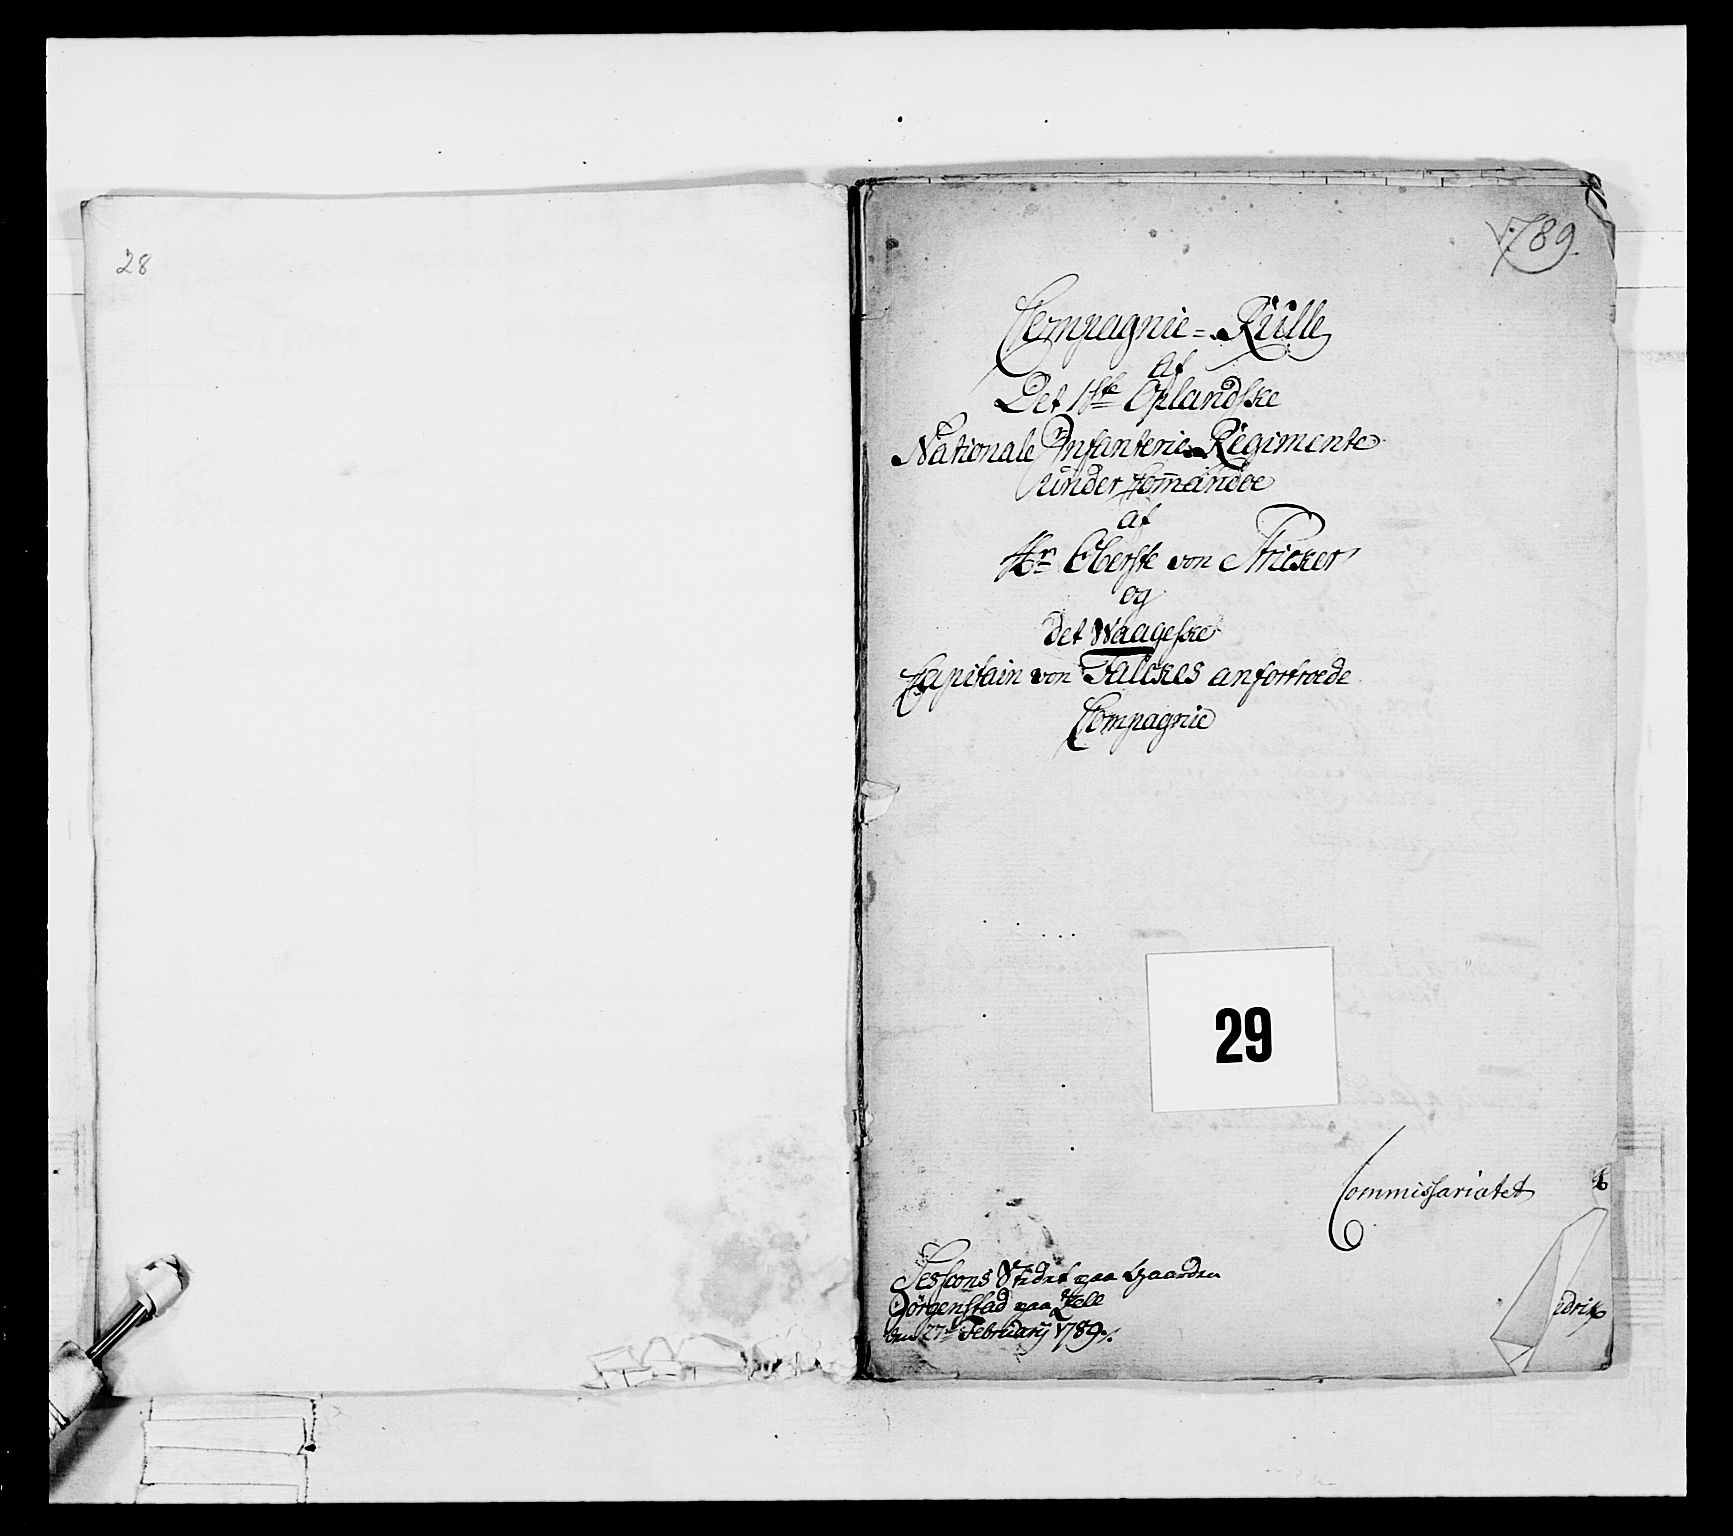 28
1789.
Compagnie=Rulle
af
Det 1ste Oplandske
Nationale Infanterie Regimente
under Com̄ando
af
Hr Oberste von Stricker
og
Det Waageske
Capitain von Falckes anfortroede
Compagnie
29
Commissariatet
Sessions Stedet paa Gaarden
Jörgenstad paa
den 27de February 1789.